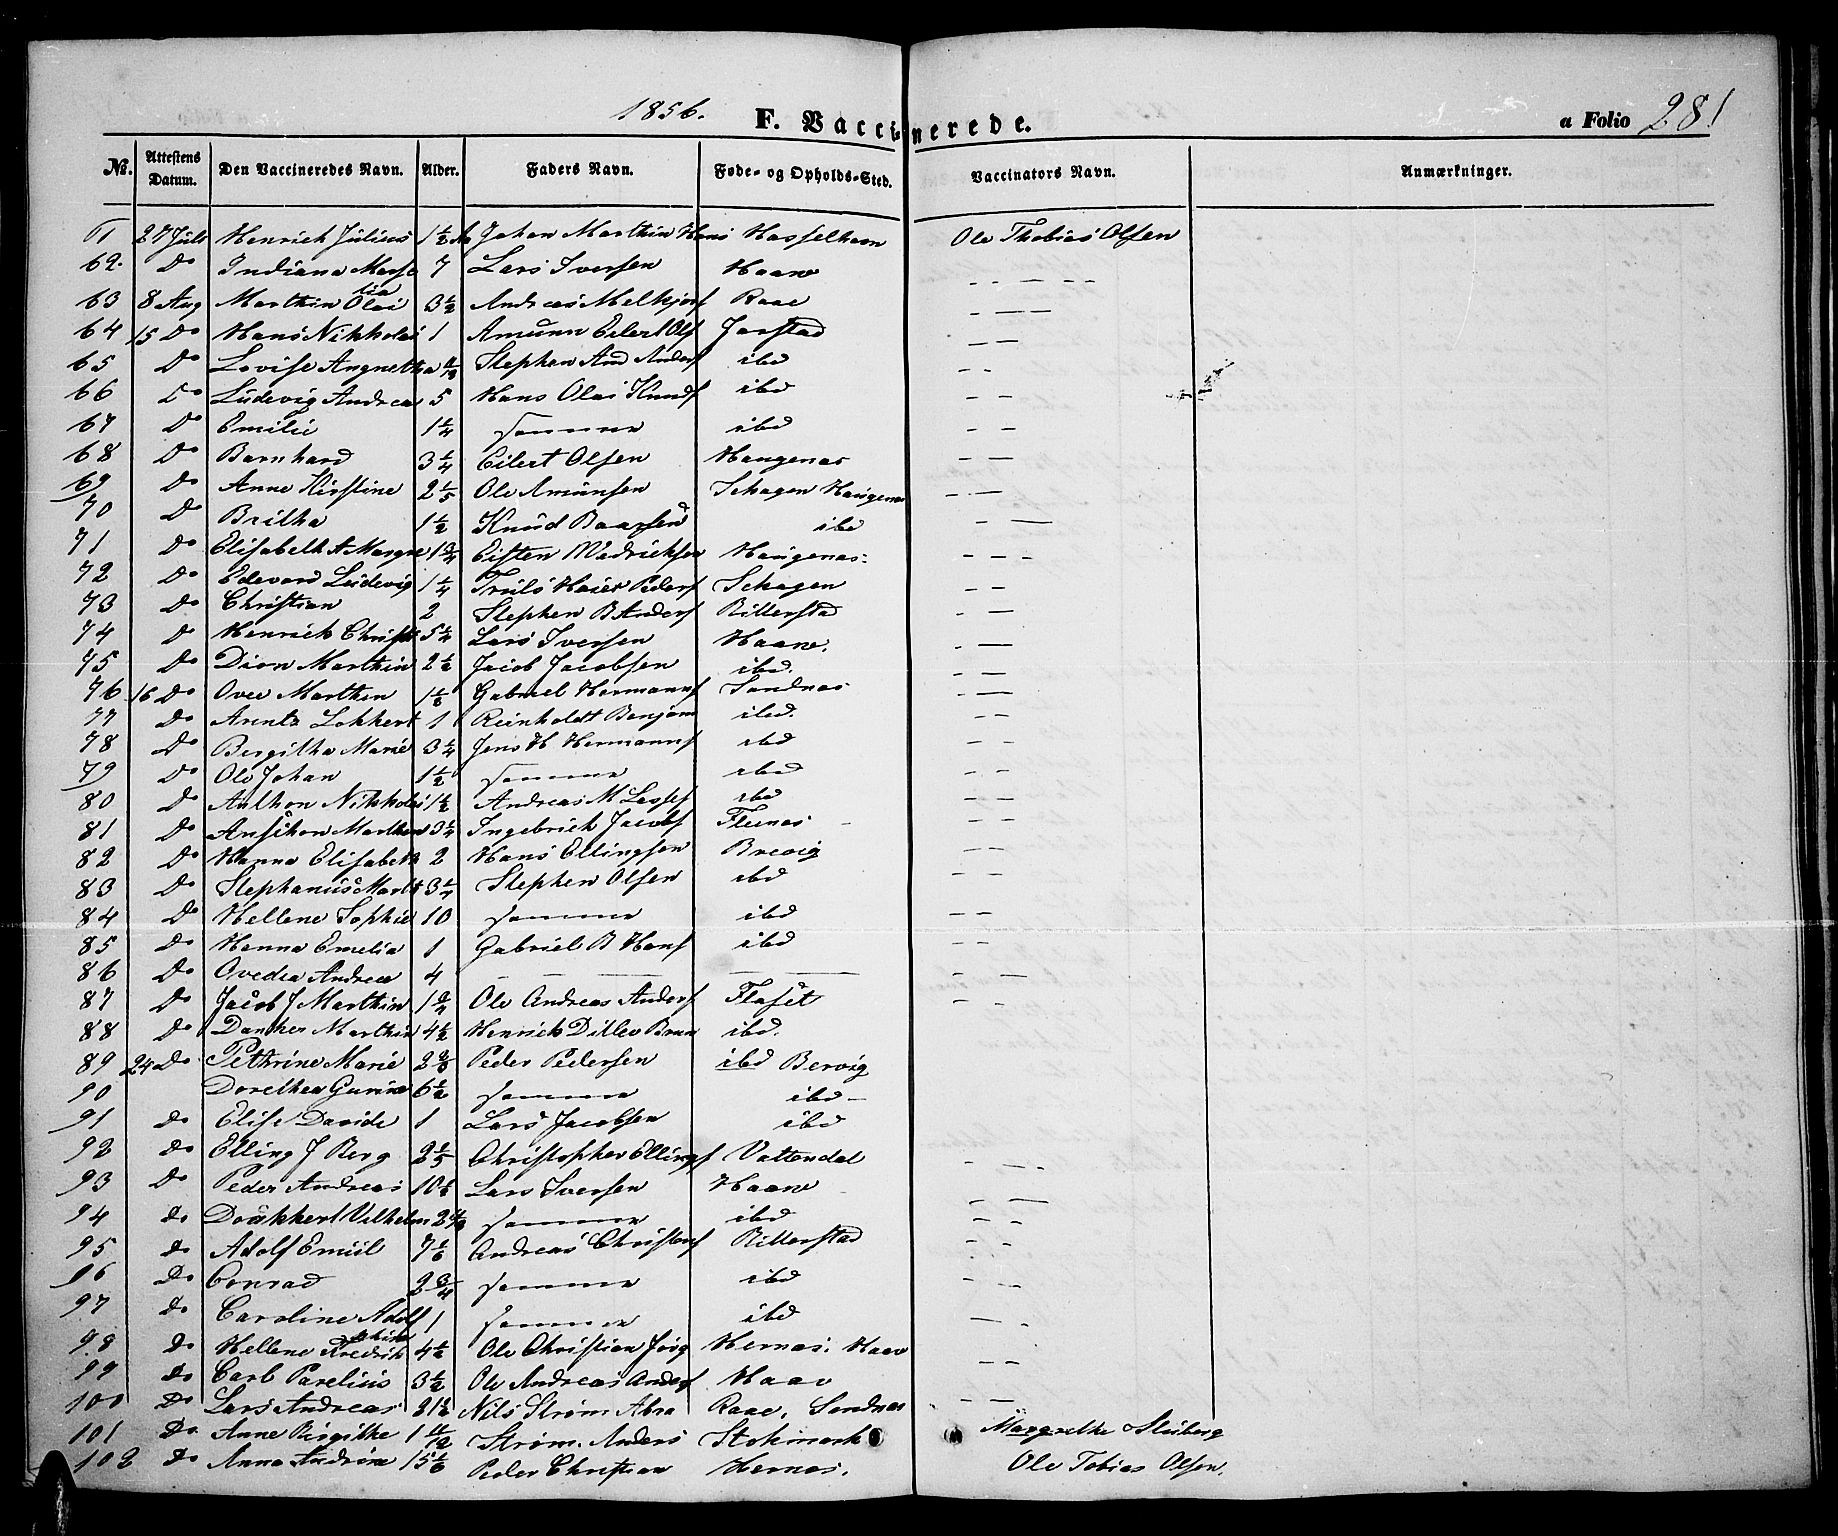 1856. F. Vaccinerede. a Folio 281
No. Attestens Datum. Den Vaccineredes Navn. Alder. Faders Navn. Føde- og Opholds-Sted. Vaccinators Navn. Anmærkninger.
61 27 Juli Henrich Julius 1 1/2 Johan Marthin Hasselhavn Ole Thobias Olsen
62. Do Indiana 7 Lars Iversen Haave
63 8 Aug Marthin Olai 3 1/2 Andreas Raae
64 15 Do Hans Nikkolai 1 Amunn Eilert Ols Jarstad
65 Do Lovise Angnetha Stephen And Anders ibd
66 Do Ludevig Andreas 5 Hans Olai Knuds ibd
67 Do Emilie 1 1/4 samme ibd
68 Do Barnhard 3 1/4 Eilert Olsen Haugenas
69 Do Anne Kirstine 2 1/5 Ole Amunsen Schagen Haugenas
70 Do Britha 1 1/2 Knud Baarsen ibd
71 Do Elisabeth A Margre 1 3/4 Eisten Haugenas
72 Do Edevard Ludevig 1 1/4 Truls Peders Schagen
73 Do Christian 2 Stephen B Anders Ritterstad
74 Do Henrich Christi 5 1/4 Lars Iversen Haave.
75 Do Dion Marthin Jacob Jacobsen ibd.
76 16 Do Ovee Marthin 1 1/6 Gabriel Hermanns Sandnas
77 Do Arntz Lokkert 1 Reinholdt Benjam ibd.
78 Do Bergitha Marie 3 1/4 Jens H Hermanns ibd
79 Do Ole Johan 1 1/2 samme ibd
80 Do Anthon Nikkolai 1 1/2 Andreas M ibd
81 Do Marthin 3 1/4 Ingebrick Jacobs Fleinas
82 Do Hanna Elisabeth 2 Hans Ellingsen Brevig
83 Do Stephanus Marth 3 1/4 Stephen Olsen ibd
84 Do Hellene Sophie 10 samme ibd
85 Do Hanna Emelia 1 Gabriel B Hans ibd
86 Do Ovedia Andrea 4 — — —
87 Do Jacob J Marthin 1 3/4 Ole Andreas Anders Flaset
88 Do Danker Marthin 4 1/2 Henrich Ditlev Brun ibd.
89 24 Do Pethrine Marie Peder Pedersen ibd Bervig
90 Dorethea Gurine 6 1/2 samme ibd
91 do Elise Davide 1 Lars Jacobsen ibd
92 do Elling J Berg 2 2/5 Christopher Ellings Vottendal
93 Do Peder Andreas Lars Iversen Haave
94 do Vilhelm samme ibd
95 do Adolf Emiil 7 1/6 Andreas Christens Ritterstad
96 Do Conrad 2 3/4 samme ibd
97 do Caroline Adolf 1 samme ibd
98 do Hellene Fredrik 4 1/2 Ole Christian Jørg Hernas. Haav
99 do Carl Parelius 3 1/2 Ole Andreas Anders Haav
100 Do Lars Andreas Nils Strøm Abra Raae, Sandnas
101 Do Anne Birgithe Strøm. Anders Stokmark Margrethe Sleiberg
102 do Anna Peder Christian Hernas. Ole Tobias Olsen.